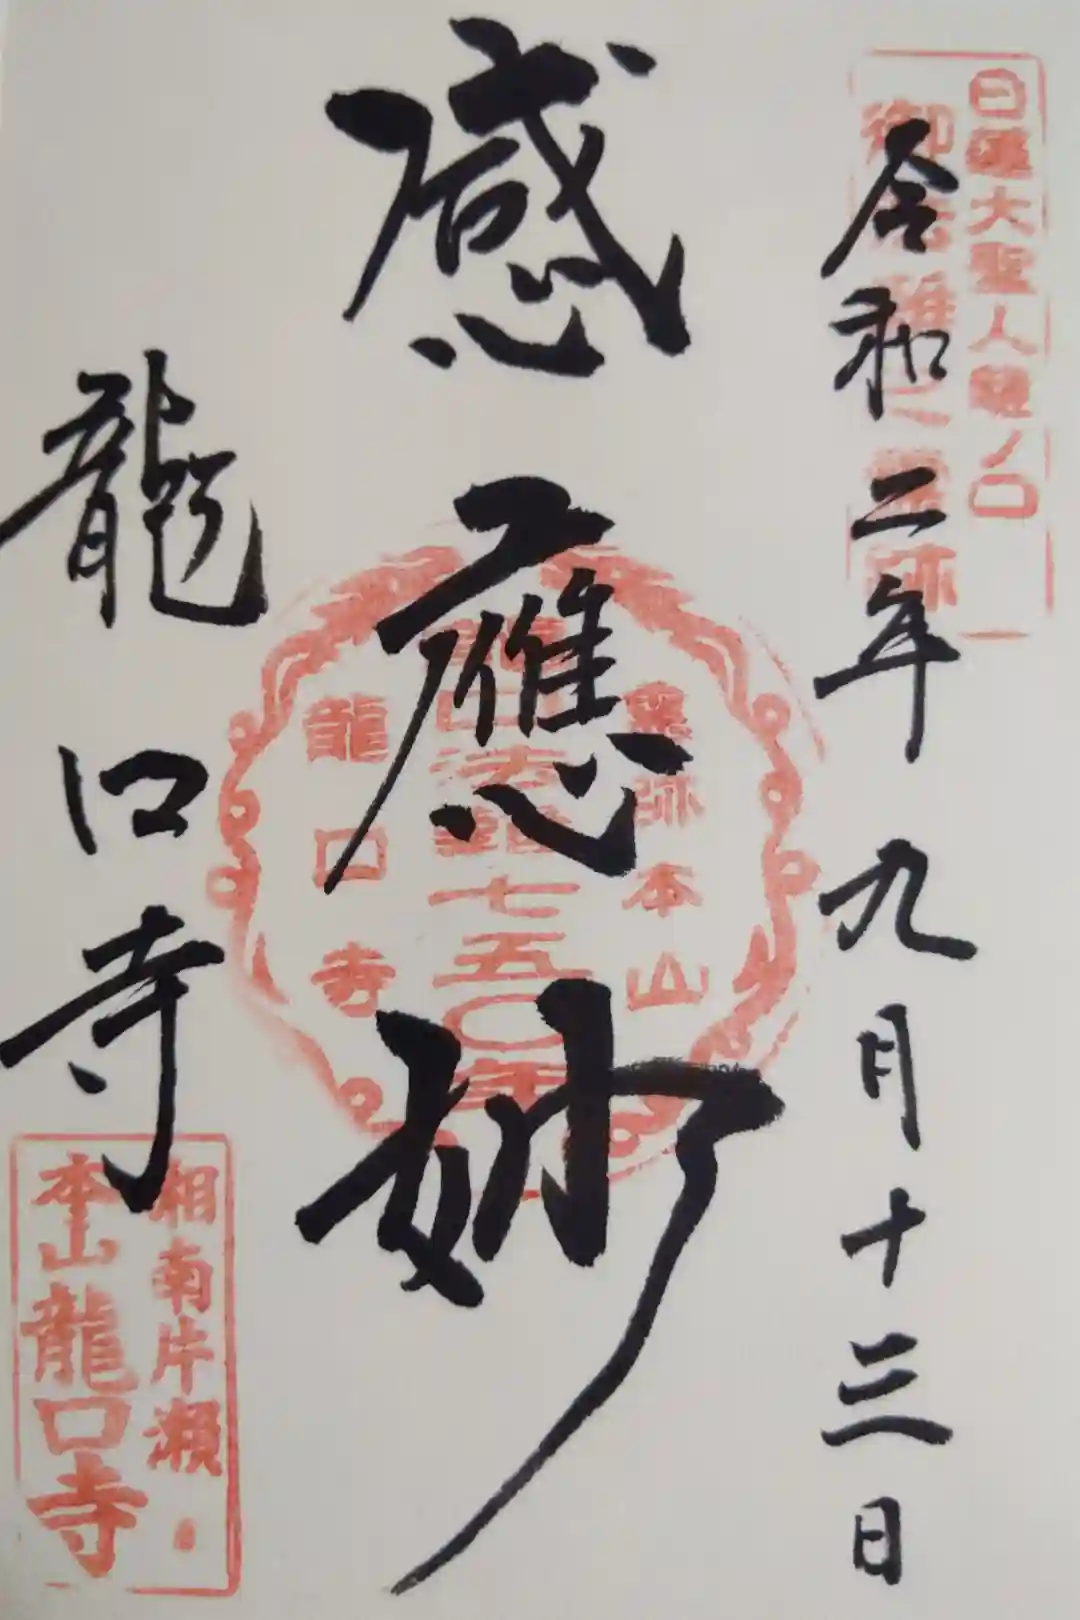 日蓮大聖人龍ノ口
御法難之霊跡
令和二年九月十三日
感應妙
霊跡本山
龍口法難七五〇年
龍口寺
龍口寺
相南片瀬
本山龍口寺